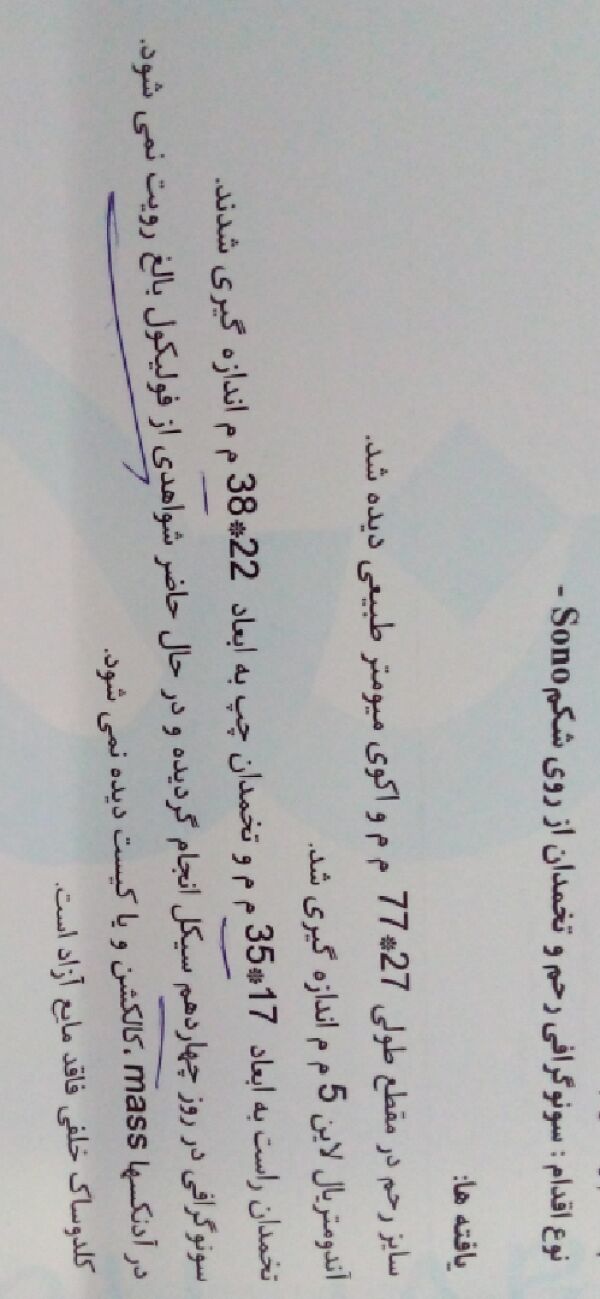 نوع اقدام : سونوگرافی رحم و تخمدان از روی شکم Sono -
یافته ها:
سایز رحم در مقطع طولی 27*77 م م و اکوی میومتر طبیعی دیده شد.
آندومتریال لاین 5 م م اندازه گیری شد.
تخمدان راست به ابعاد 17*35 م م و تخمدان چپ به ابعاد 22*38 م م اندازه گیری شدند.
سونوگرافی در روز چهاردهم سیکل انجام گردیده و در حال حاضر شواهدی از فولیکول بالغ رویت نمی شود.
در آدنکسها mass ،کالکشن و یا کیست دیده نمی شود.
کلدوساک خلفی فاقد مایع آزاد است.